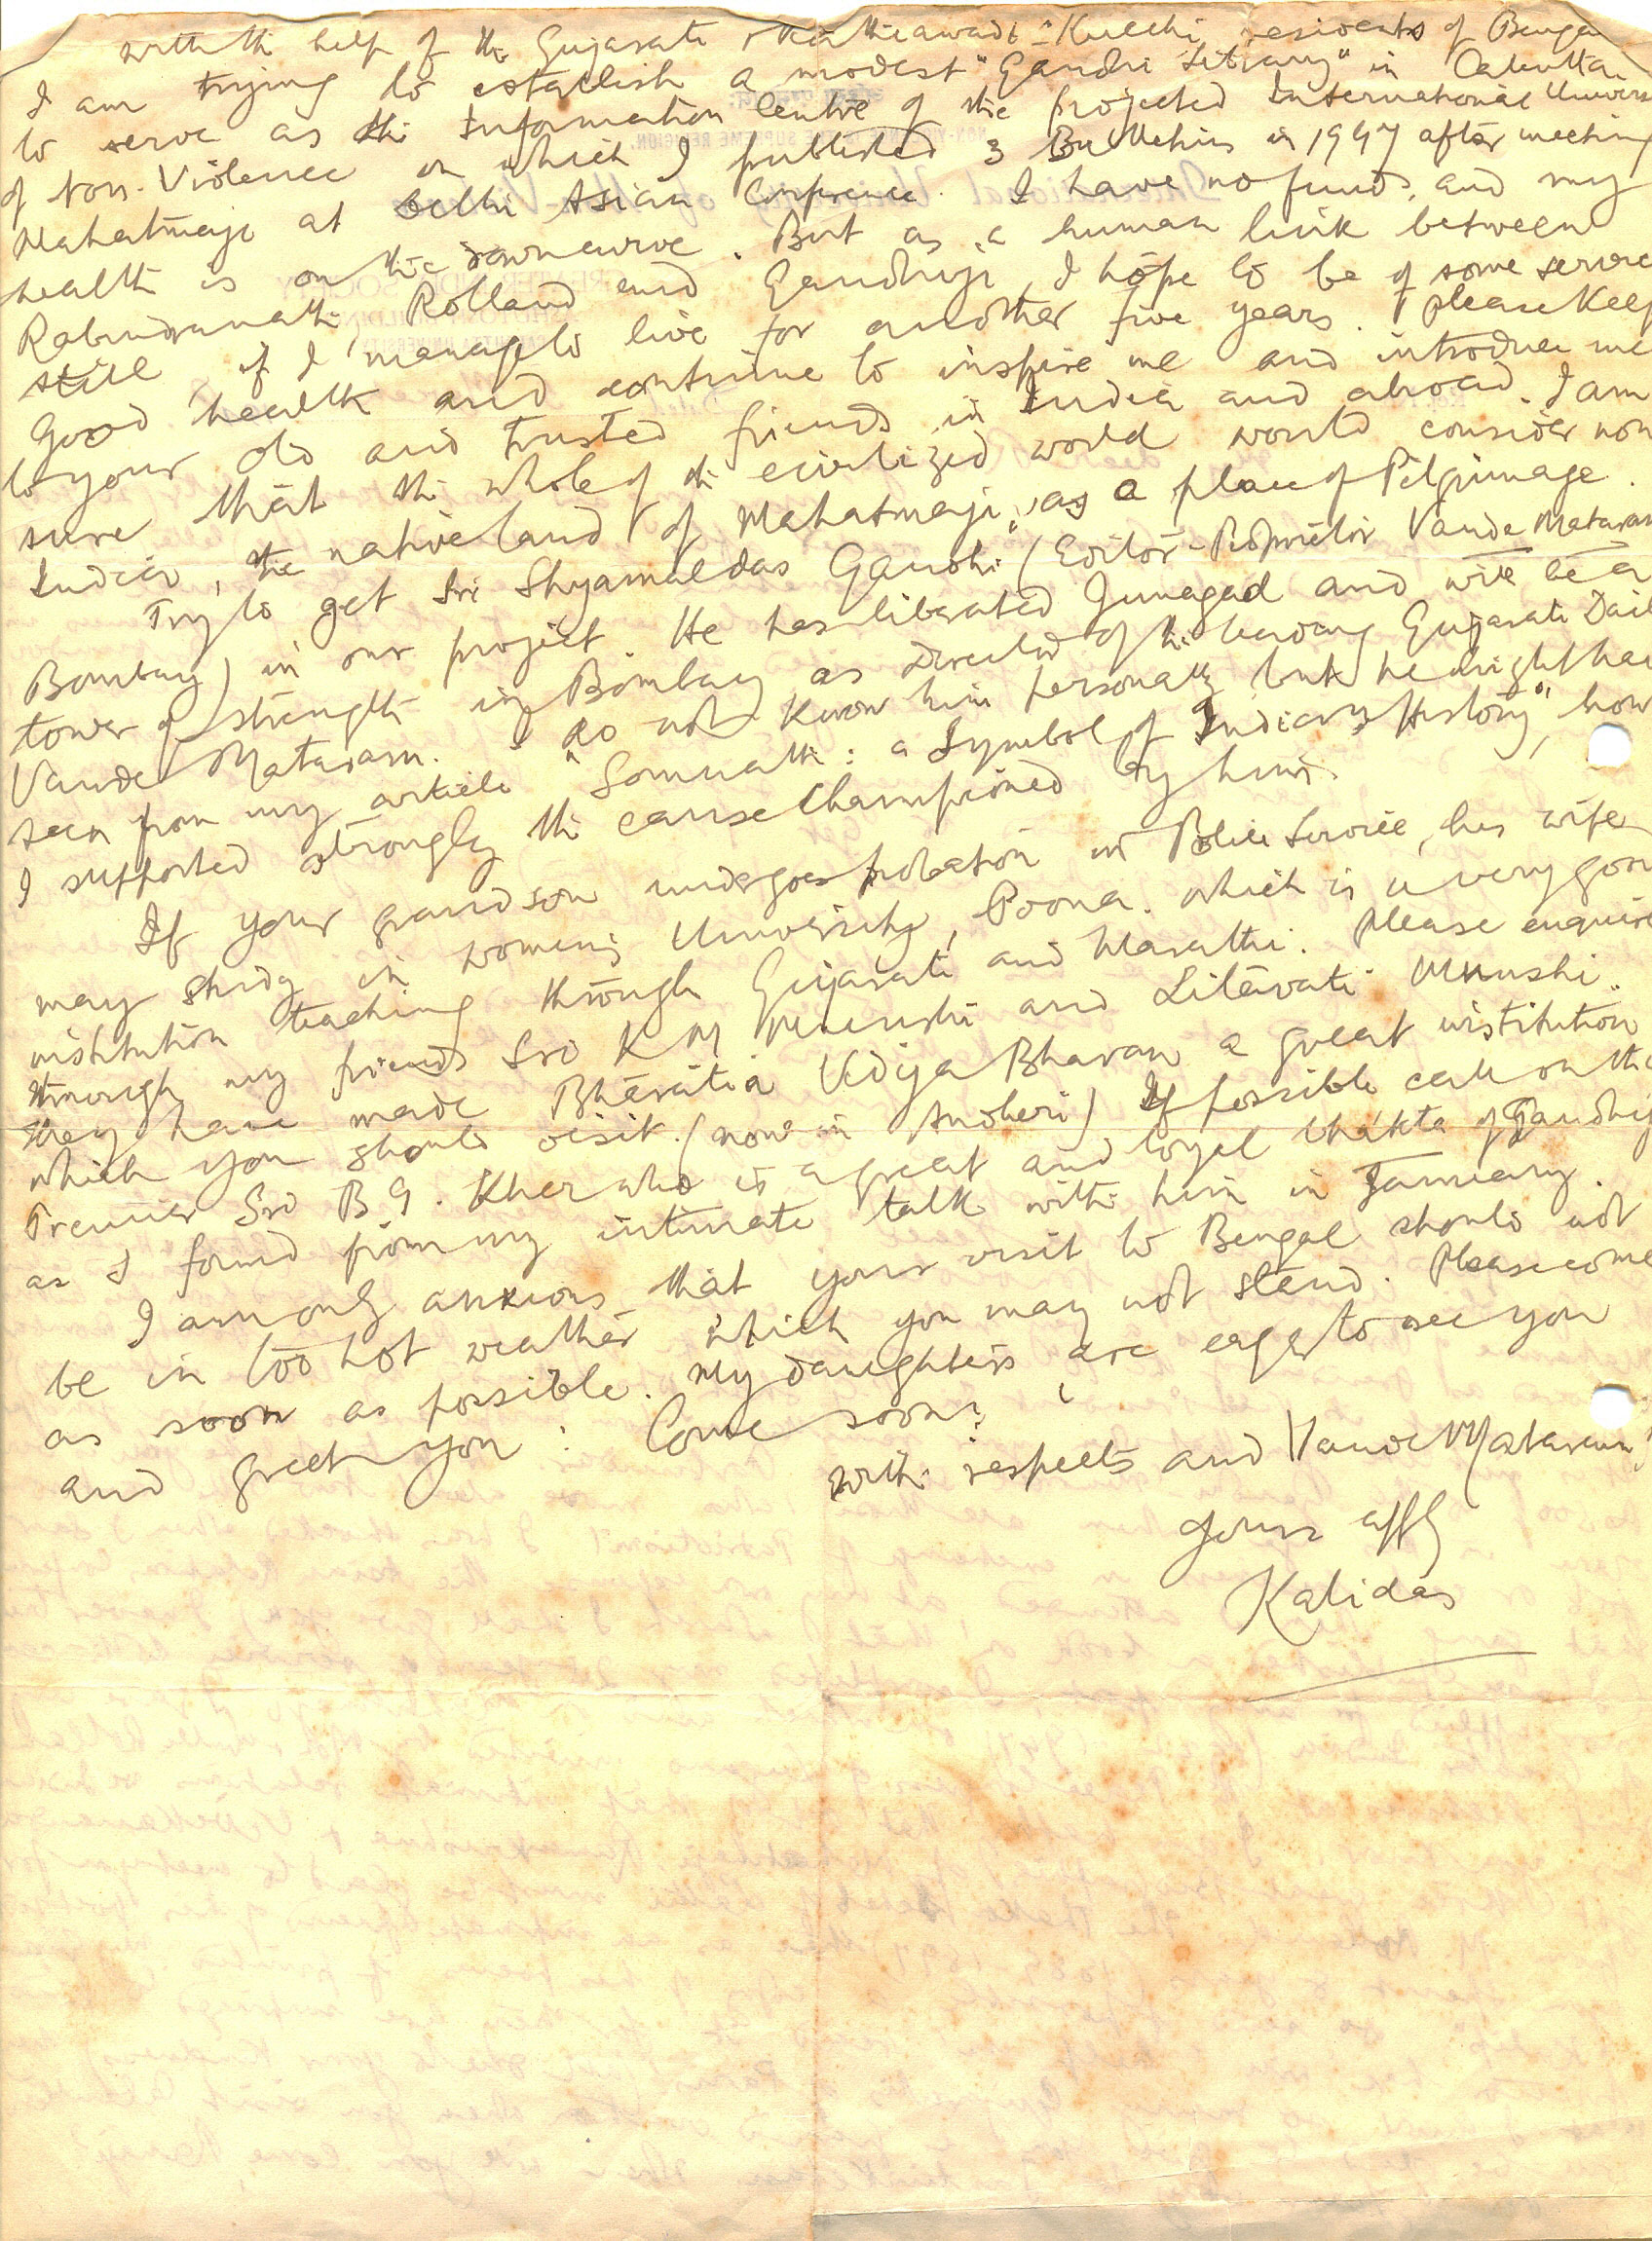 with the help of the Gujarati Kathiawadi - Kutchi residents of Bengal
I am trying to establish a modest "Gandhi Library" in Calcutta
to serve as the Information Centre of the projected International Univers
of Non-Violence on which I published 3 Bulletins in 1947 after meeting
Mahatmaji at Delhi Asian Conference. I have no funds, and my
health is on the downcurve. But as a human link between
Rabindranath, Rolland and Gandhiji I hope to be of some service
still if I manage to live for another five years. Please keep
good health and continue to inspire me and introduce me
to your old and trusted friends in India and abroad. I am
sure that the whole of the civilized world would consider now
India, the native land of Mahatmaji, as a place of Pilgrimage.
Try to get Sri Shyamaldas Gandhi (Editor-Proprietor Vande Mataram
Bombay) in our project. He has liberated Junagad and will be a
tower of strength in Bombay as Director of the leading Gujarati Dail
Vande Mataram. I do not know him personally but he might hav
seen from my article "Somnath: a Symbol of Indian History", how
I supported strongly the cause championed by him.
If your grandson undergoes probation in Police Service, his wife
may study in Women's University, Poona. which is a very good
institution teaching through Gujarati and Marathi. Please enquire
through my friends Sri K M Munshi and Lilavati Munshi.
They have made Bharatia Vidya Bhavan a great institution
which you should visit. (now in Andheri) If possible call on the
Premier Sri B G. Kher who is a great and loyal bhakta of Gandhiji
as I found from my intimate talk with him in January.
I am only anxious that your visit to Bengal should not
be in too hot weather which you may not stand. Please come
as soon as possible. My daughters are eager to see you
and greet you! Come soon!
with respects and Vande Mataram
Yours affly
Kalidas